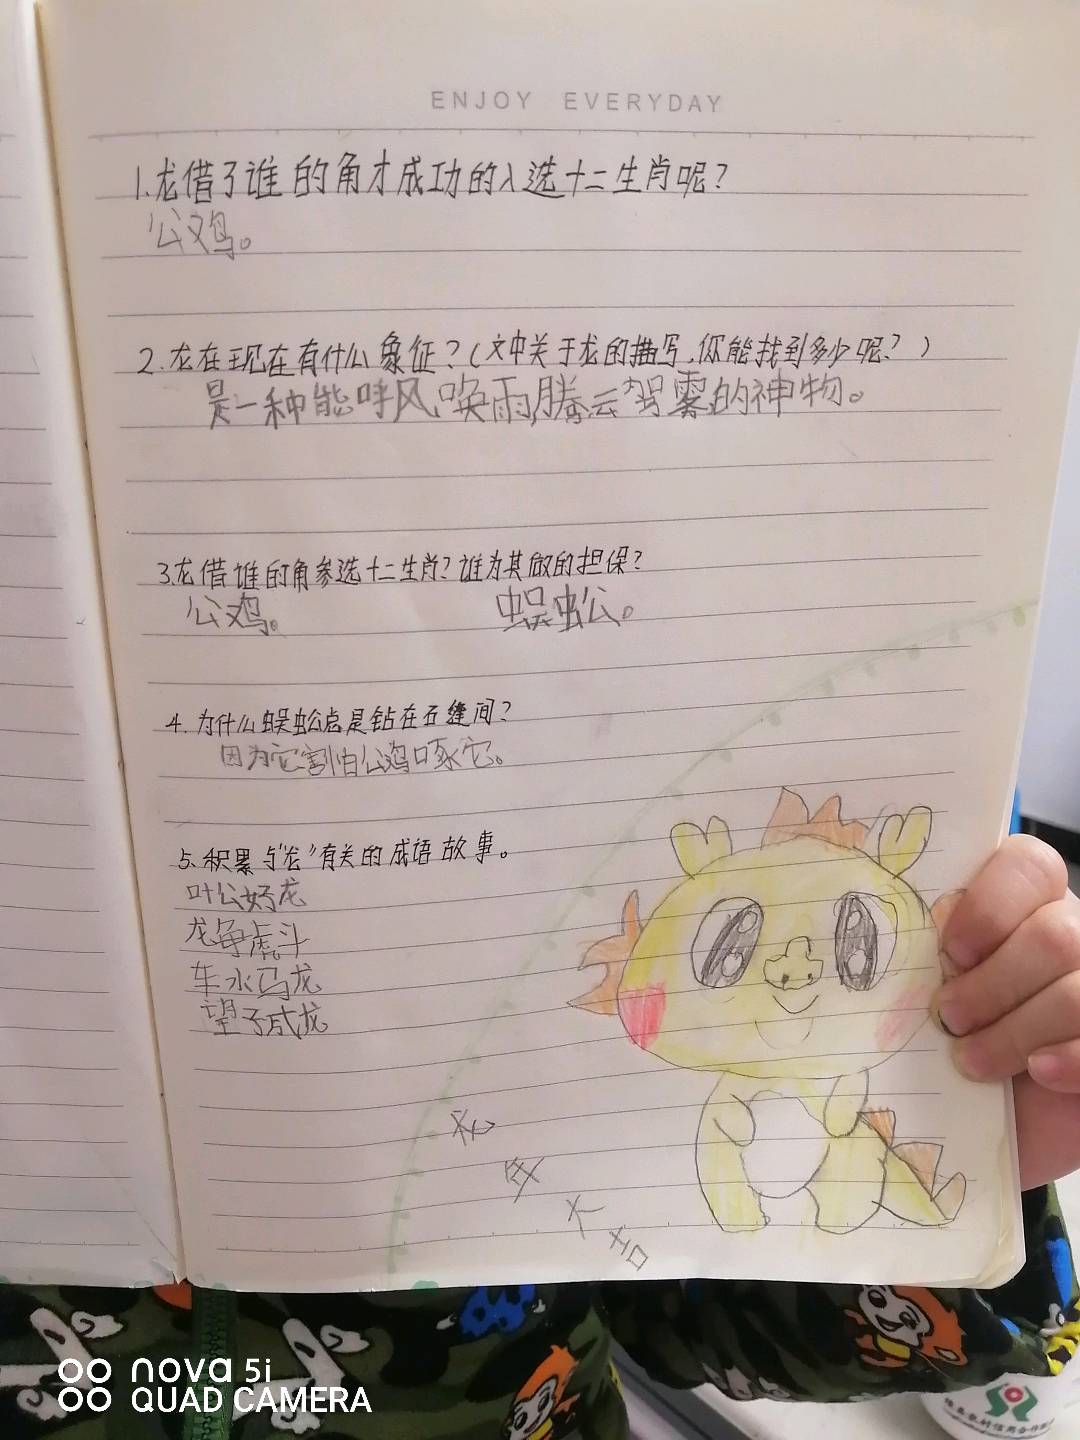 ENJOY EVERYDAY
1.龙借了谁的角才成功的入选十二生肖呢？
公鸡。
2.龙在现在有什么象征？（文中关于龙的描写，你能找到多少呢？）
是一种能呼风唤雨,腾云驾雾的神物。
3.龙借谁的角参选十二生肖？谁为其做的担保？
公鸡。 蜈蚣。
4.为什么蜈蚣总是钻在石缝间？
因为它害怕公鸡啄它。
5.积累与“龙”有关的成语故事。
叶公好龙
龙争虎斗
车水马龙
望子成龙
大吉
nova 5i
QUAD CAMERA